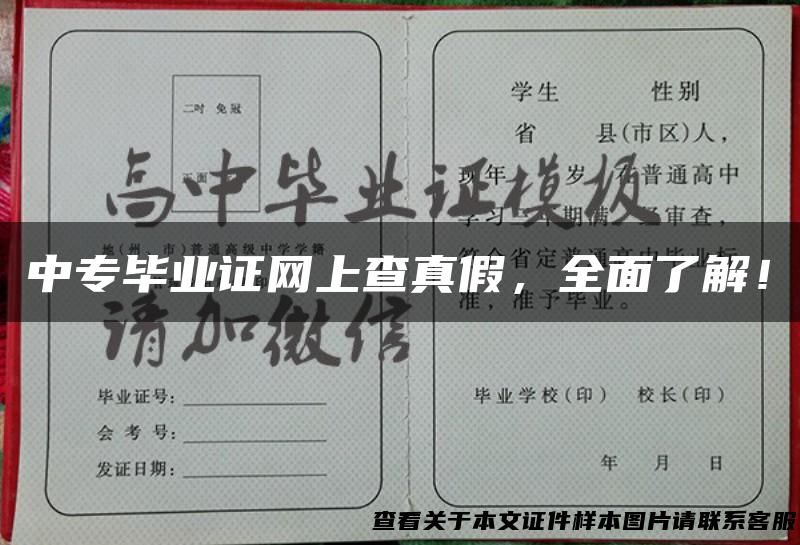 二吋 免冠
正面
地(州、市)普通高级中学学籍
毕业证号:
会考号:
发证日期:
学生 性别
省 县(市区)人,
现年 岁,在普通高中
学习 期满,经审查,
符合省定普通高中毕业标
准,准予毕业。
毕业学校(印) 校长(印)
年 月 日
高中毕业证模板
请加微信
中专毕业证网上查真假,全面了解!
查看关于本文证件样本图片请联系客服